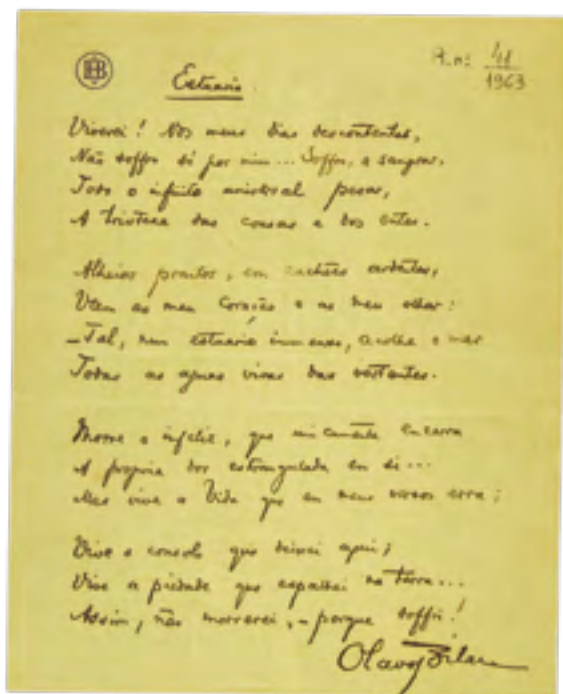 Estuario
1963
Viverei! Nos meus dias descontentes,
Não soffro só por mim... Soffro, a sangrar,
Todo o infinito universal pesar,
A tristeza das cousas e dos entes.
Alheios prantos, em cachões ardentes,
Vem ao meu coração e ao meu olhar:
– Tal, num estuario immenso, acolhe o mar
Todas as aguas vivas das vertentes.
Morre o infeliz, que unicamente encerra
A propria dor estrangulada em si...
Mas vive a Vida que em meus versos erra;
Vive o consolo que deixei aqui;
Vive a piedade que espalhei na terra...
Assim, não morrerei, – porque soffri!
Olavo Bilac